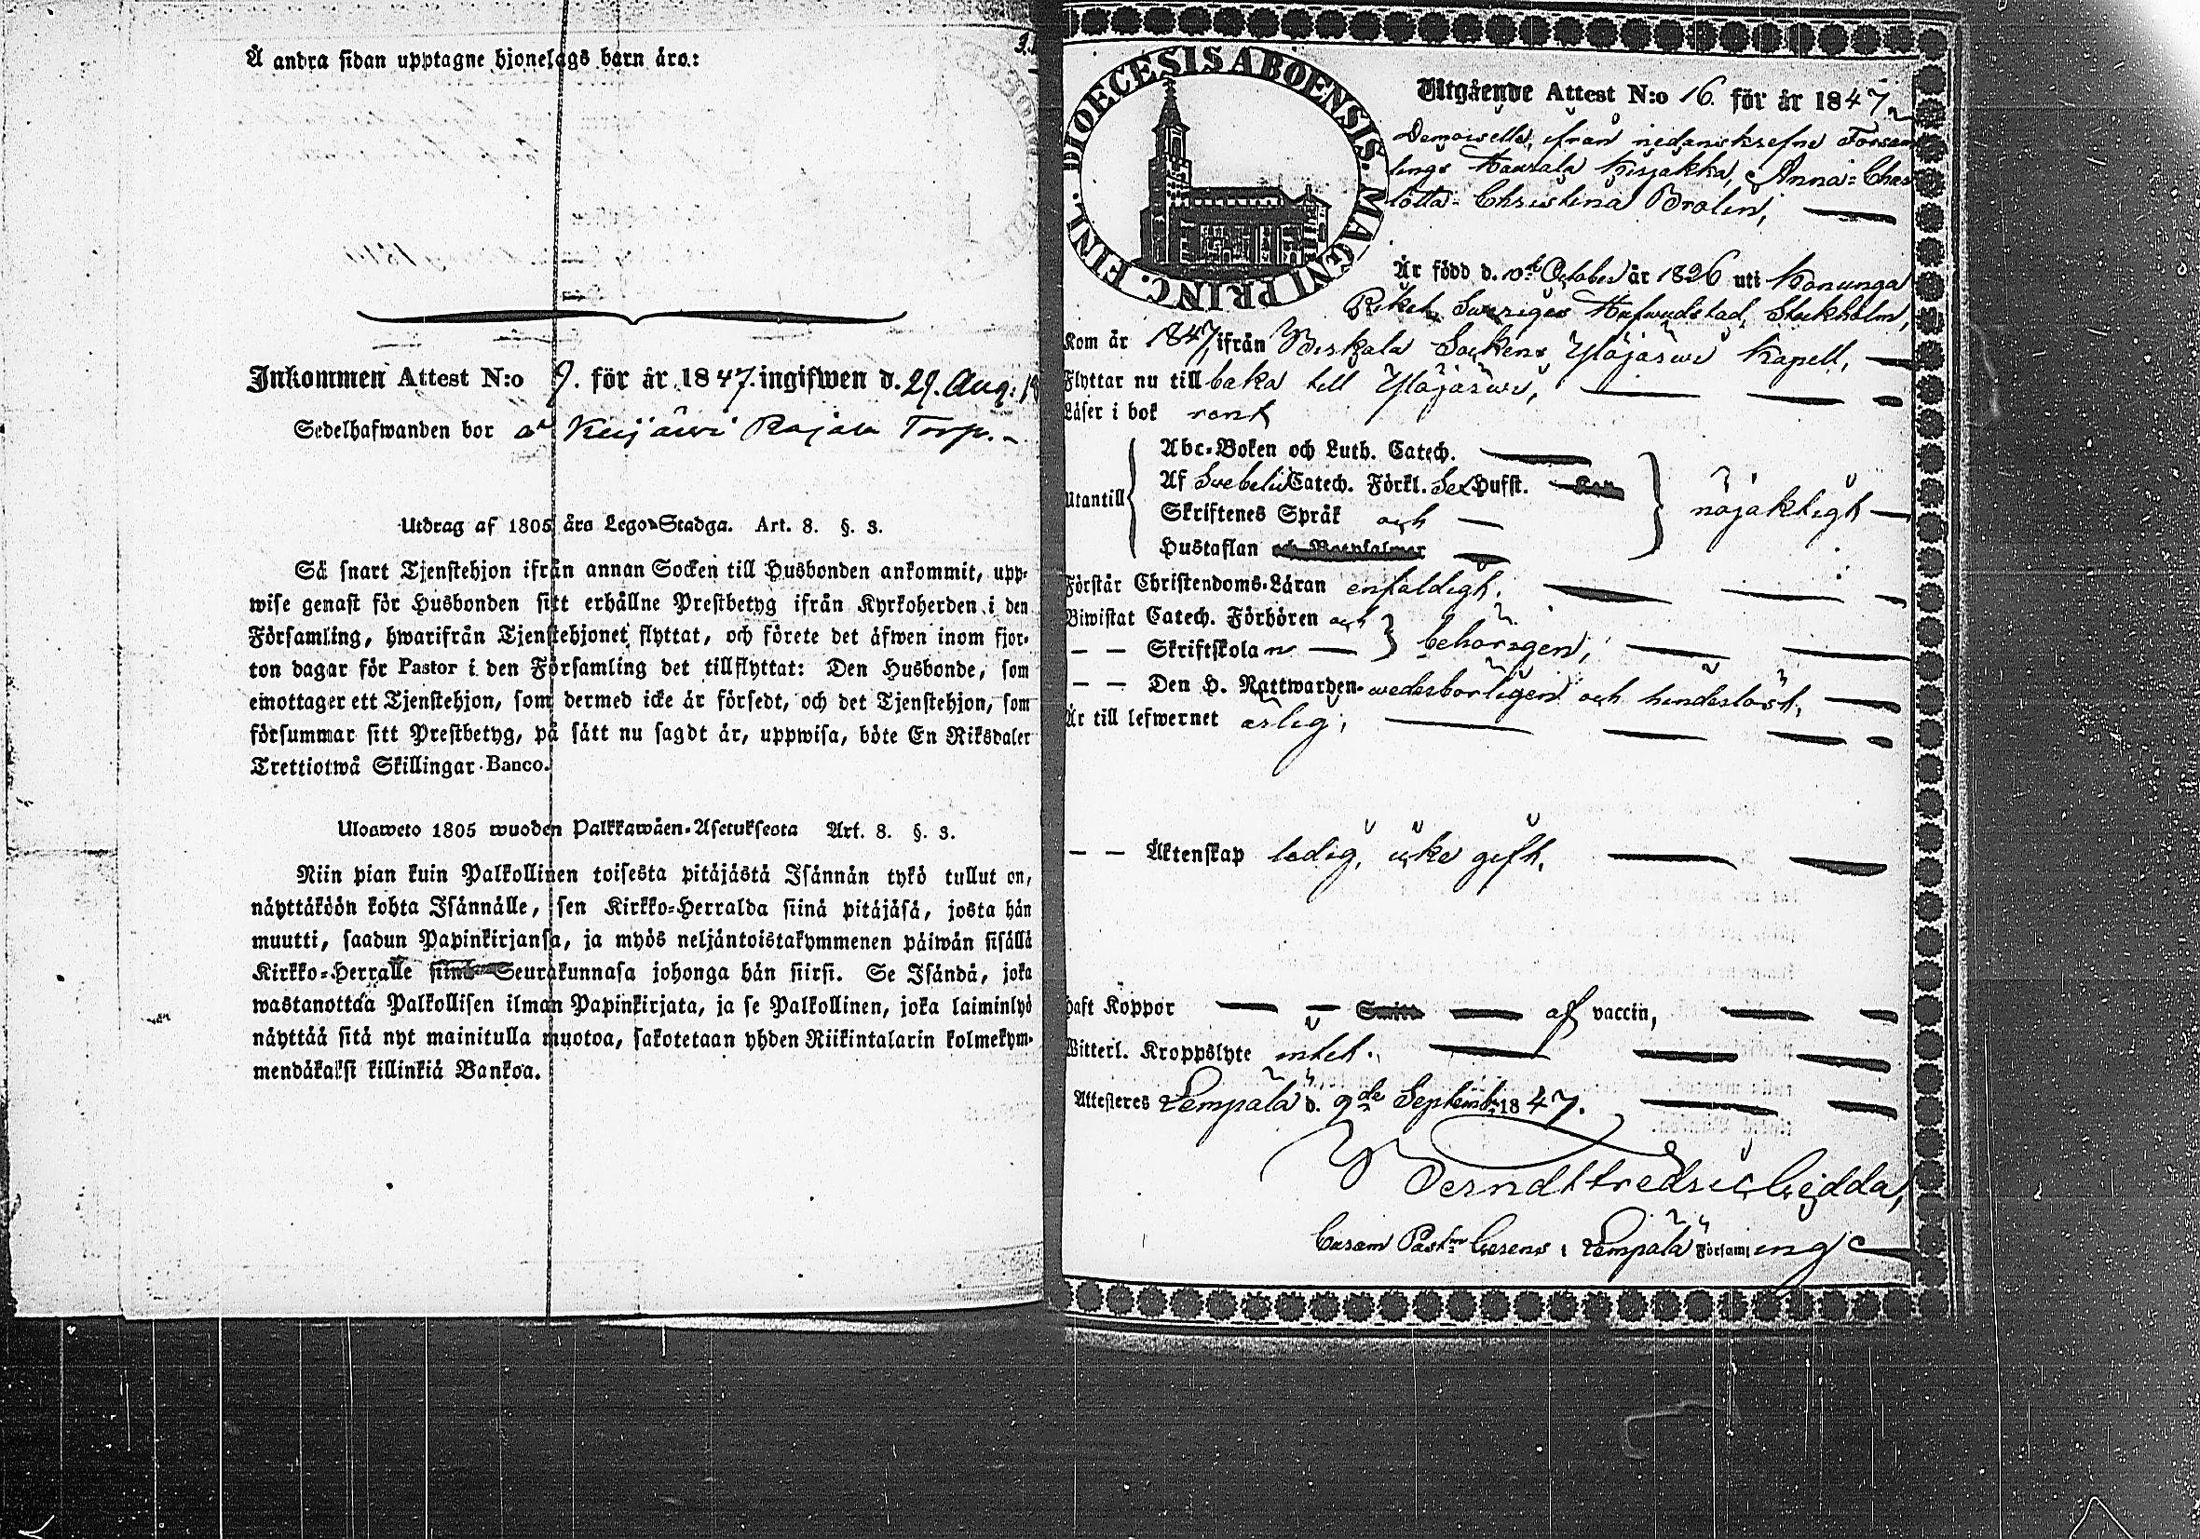 Å andra sidan upptagne hjonelags barn äro:
Inkommen Attest N:o 9. för år 1847. ingifwen d. 29. Aug: 18
Sedelhafwanden bor å Keijärwi Rajala Torp.
Utdrag af 1805 års Lego-Stadga. Art. 8. §. 3.
Så snart Tjenstehjon ifrån annan Socken till Husbonden ankommit, upp-
wise genast för Husbonden sitt erhållne Prestbetyg ifrån Kyrkoherden i den
Församling, hwarifrån Tjenstehjonet flyttat, och förete det äfwen inom fjor-
ton dagar för Pastor i den Församling det tillflyttat: Den Husbonde, som
emottager ett Tjenstehjon, som dermed icke är försedt, och det Tjenstehjon, som
försummar sitt Prestbetyg, på sätt nu sagdt är, uppwisa, böte En Riksdaler
Trettiotwå Skillingar Banco.
Ulosweto 1805 wuoden Palkkawäen-Asetuksesta Art. 8. §. 3.
Niin pian kuin Palkollinen toisesta pitäjästä Isännän tykö tullut on,
näyttäköön kohta Isännälle, sen Kirkko-Herralda siinä pitäjäsä, josta hän
muutti, saadun Papinkirjansa, ja myös neljäntoistakymmenen päiwän sisällä
Kirkko-Herralle Seurakunnasa johonga hän siirsi. Se Isändä, joka
wastanottaa Palkollisen ilman Papinkirjata, ja se Palkollinen, joka laiminlyö
näyttää sitä nyt mainitulla muotoa, sakotetaan yhden Riikintalarin kolmekym-
mendäkaksi killinkiä Bankoa.
DIOECESIS ABOENSIS. MAGNI PRINC. FINL.
Utgående Attest N:o 16. för år 1847
Demoiselle, ifrån nedanskrefne Försam
lings Kaurala Kirjakka, Anna-Char
lotta-Christina Brolin,
Är född d. 10de October år 1826 uti Konunga
Riket Sweriges Hufwudstad, Stockholm,
Kom år 1847, ifrån Birkala Sockens Ylöjärwi Kapell,
Flyttar nu till baka till Ylöjärwi,
Läser i bok rent
Abc-Boken och Luth. Catech.
Af Svebelii Catech. Förkl. Sex Hufst.
Utantill Skriftenes Språk och nöjaktigt
Hustaflan
Förstår Christendoms-Läran enfaldigt.
Biwistat Catech. Förhören och
— — Skriftskolan — behörigen,
— — Den H. Nattwarden wederbörligen och hinderlöst,
Är till lefwernet ärlig,
— — Äktenskap ledig, icke gift.
haft Koppor — — af vaccin,
Witterl. Kroppslyte intet.
Attesteres Lempälä d. 9de Septemb. 1847.
Berndt Fredric Gedda,
Curam Past:m Gerens i Lempälä Församling